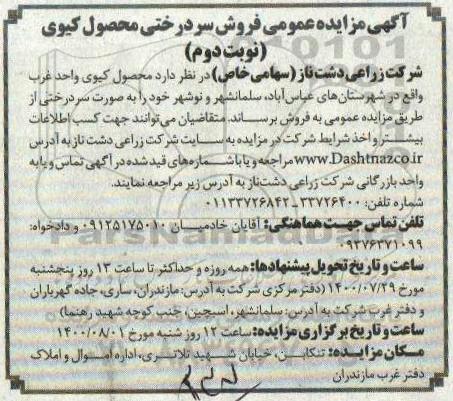 آگهی مزایده عمومی فروش سردرختی محصول کیوی
(نوبت دوم)
شرکت زراعی دشت ناز (سهامی خاص) در نظر دارد محصول کیوی واحد غرب
واقع در شهرستان‌های عباس‌آباد، سلمانشهر و نوشهر خود را به صورت سردرختی از
طریق مزایده عمومی به فروش برساند. متقاضیان می‌توانند جهت کسب اطلاعات
بیشتر و اخذ شرایط شرکت در مزایده به سایت شرکت زراعی دشت ناز به آدرس
www.Dashtnazco.ir مراجعه و یا با شماره‌های قید شده در آگهی تماس و یا به
واحد بازرگانی شرکت زراعی دشت‌ناز به آدرس زیر مراجعه نمایند.
شماره تلفن: ۳۳۷۲۶۴۰۰ـ۰۱۱۳۳۷۲۶۸۴۲
تلفن تماس جهت هماهنگی: آقایان خادمیان ۰۹۱۲۵۱۷۵۰۱۰ و دادخواه:
۰۹۳۷۶۳۷۱۰۹۹
ساعت و تاریخ تحویل پیشنهادها: همه روزه و حداکثر تا ساعت ۱۳ روز پنجشنبه
مورخ ۱۴۰۰/۰۷/۲۹ (دفتر مرکزی شرکت به آدرس: مازندران، ساری، جاده گهرباران
و دفتر غرب شرکت به آدرس: سلمانشهر، اسبچین، جنب کوچه شهید رهنما)
ساعت و تاریخ برگزاری مزایده: ساعت ۱۲ روز شنبه مورخ ۱۴۰۰/۰۸/۰۱
مکان مزایده: تنکابن، خیابان شهید تلاتری، اداره اموال و املاک
دفتر غرب مازندران